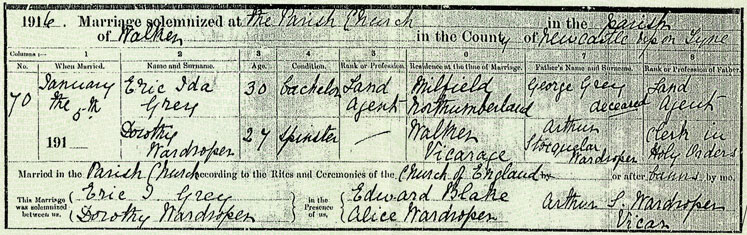 1916. Marriage solemnized at the Parish Church in the Parish
of Walker in the County of Newcastle upon Tyne
Columns:— 1 2 3 4 5 6 7 8
No. When Married. Name and Surname. Age. Condition. Rank or Profession. Residence at the time of Marriage. Father's Name and Surname. Rank or Profession of Father.
70 January the 5th 191 Eric Ida Grey 30 bachelor Land Agent Milfield Northumberland George Grey deceased Land Agent
Dorothy Wardroper 27 Spinster — Walker Vicarage Arthur Stocquelar Wardroper Clerk in Holy Orders
Married in the Parish Church according to the Rites and Ceremonies of the Church of England or after banns by me,
This Marriage was solemnized between us, Eric I Grey Dorothy Wardroper in the Presence of us, Edward Blake Alice Wardroper Arthur S. Wardroper Vicar